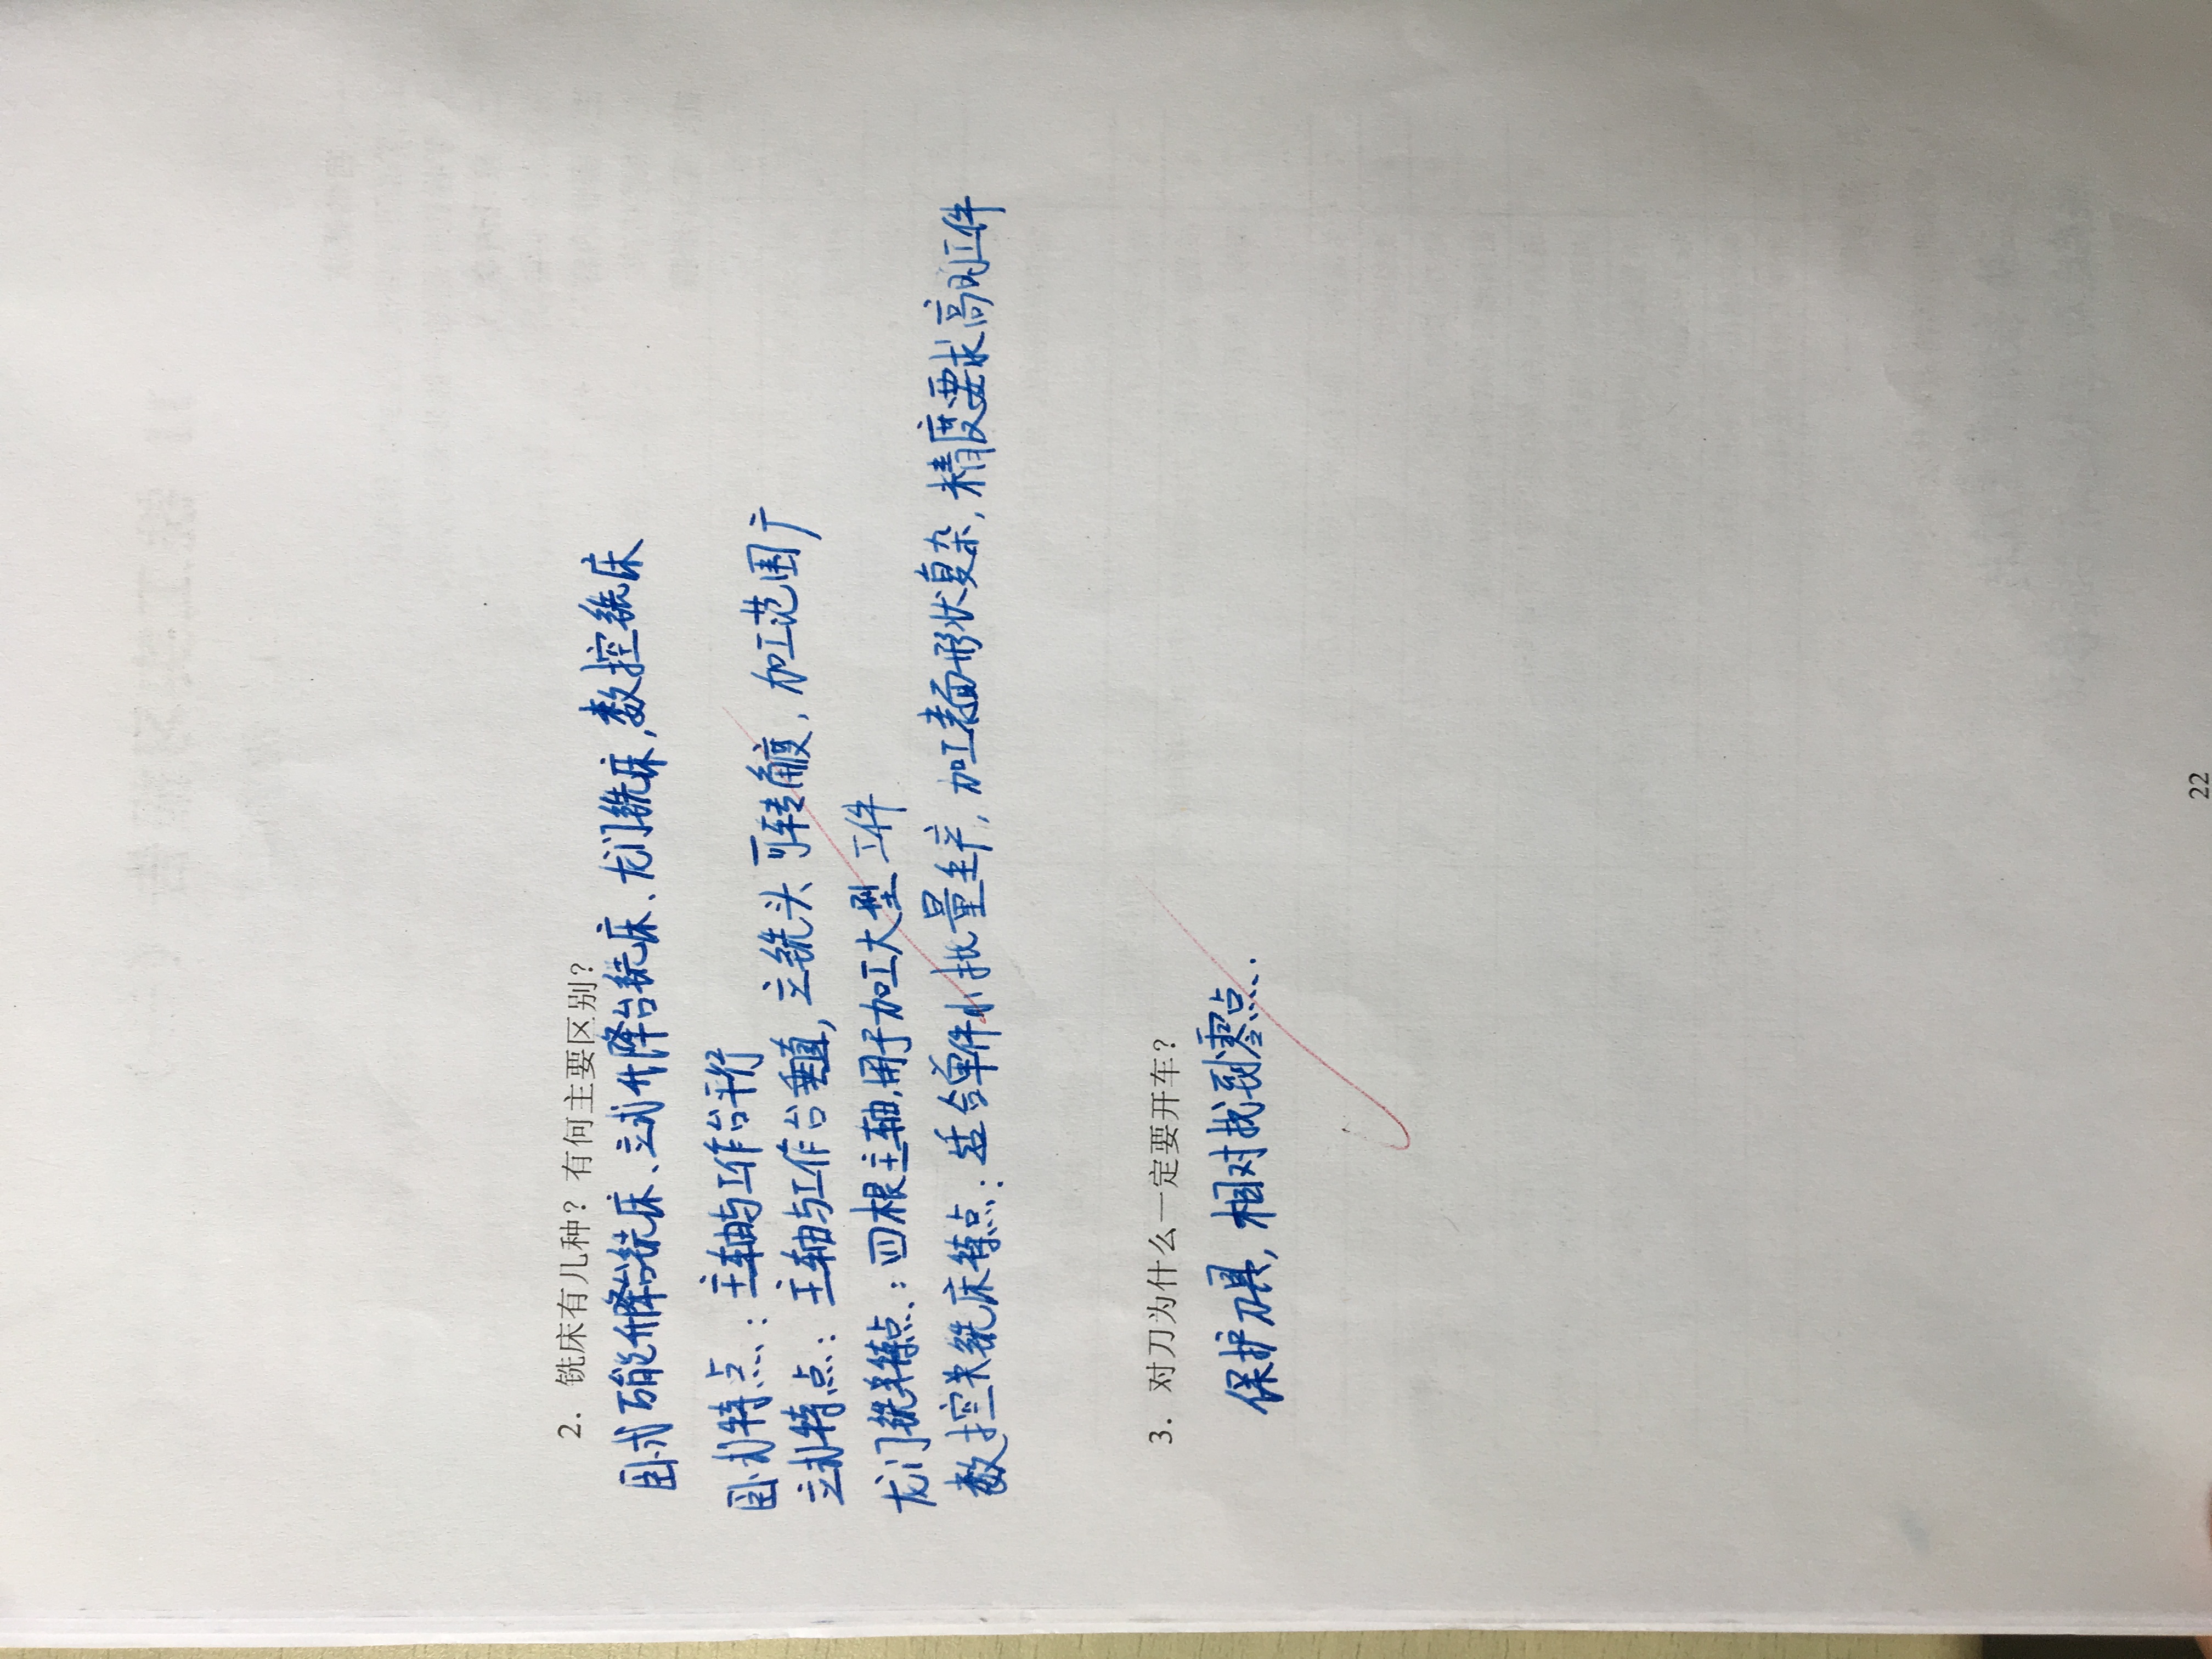 2. 铣床有几种？有何主要区别？
卧式万能升降台铣床、立式升降台铣床、龙门铣床，数控铣床
卧式特点：主轴与工作台平行
立式特点：主轴与工作台垂直，立铣头可转角度，加工范围广
龙门铣特点：四根主轴，用于加工大型工件
数控铣床特点：适合单件小批量生产，加工表面形状复杂，精度要求高的工件
3. 对刀为什么一定要开车？
保护刀具，相对找到零点.
22